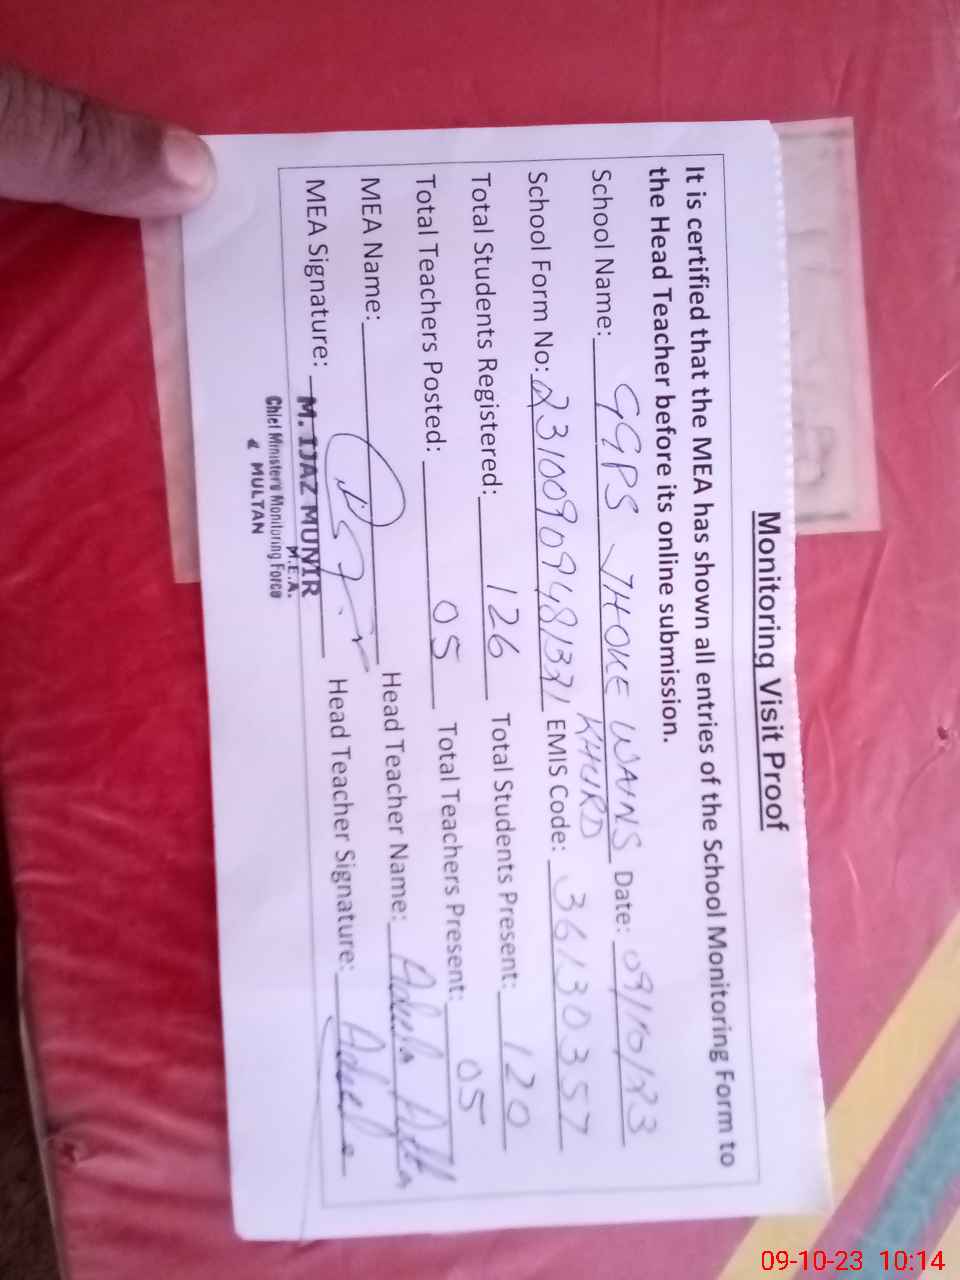 Monitoring Visit Proof
It is certified that the MEA has shown all entries of the School Monitoring Form to
the Head Teacher before its online submission.
School Name: GGPS JHOKE WAINS KHURD Date: 09/10/23
School Form No: 23100909481321 EMIS Code: 36130357
Total Students Registered: 126 Total Students Present: 120
Total Teachers Posted: 05 Total Teachers Present: 05
MEA Name: Head Teacher Name: Adeela Atta
MEA Signature: Head Teacher Signature: Adeela
M. IJAZ MUNIR
M.E.A.
Chief Minister's Monitoring Force
MULTAN
09-10-23 10:14